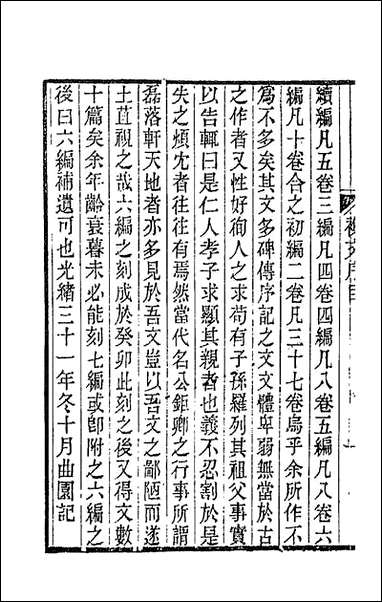 續編凡五卷三編凡四卷四編凡八卷五編凡八卷六
編凡十卷合之初編二卷凡三十七卷烏乎余所作不
為不多矣其文多碑傳序記之文文體卑弱無當於古
之作者又性好徇人之求苟有子孫羅列其祖父事實
以告輒曰是仁人孝子求顯其親者也義不忍割於是
失之煩宂者往往有焉然當代名公鉅卿之行事所謂
磊落軒天地者亦多見於吾文豈以吾文之鄙陋而遂
土苴視之哉六編之刻成於癸卯此刻之後又得文數
十篇矣余年齡衰暮未必能刻七編或卽附之六編之
後曰六編補遺可也光緒三十一年冬十月曲園記